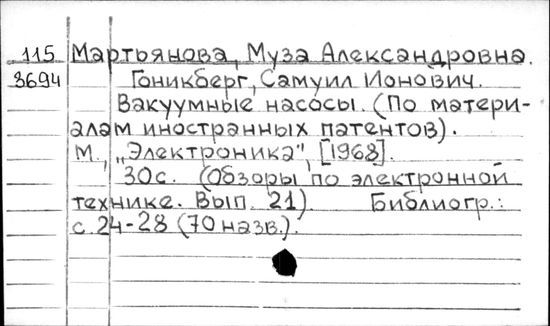 115 Мартьянова, Муза Александровна.
3694 Гоникберг, Самуил Ионович.
Вакуумные насосы. (По матери-
алам иностранных патентов).
М., „Электроника", [1968].
30с. (Обзоры по электронной
технике. Вып. 21). Библиогр.:
с. 24-28 (70 назв.).